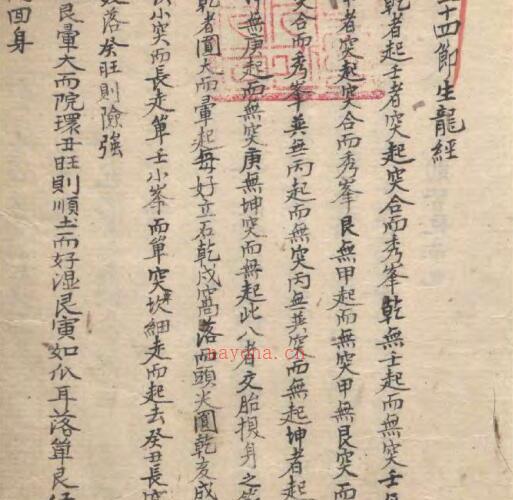 二十四節生龍經
乾者起壬者突起突合而秀峯乾無壬起而無突壬無
者突起突合而秀峯艮無甲起而無突甲無艮突而
突合而秀峯巽無丙起而無突丙無巽突而無起坤者起
無庚起而無突庚無坤突而無起此八者交胎換身之
乾者圓大而暈起每好立石乾戌窩落而頭尖圓乾亥成
小突而長走單壬小峯而單突坎細走而起去癸丑長
落癸旺則險強
艮暈大而院環丑旺則順土而好湿艮寅如爪耳落單艮
回身
nayona.cn